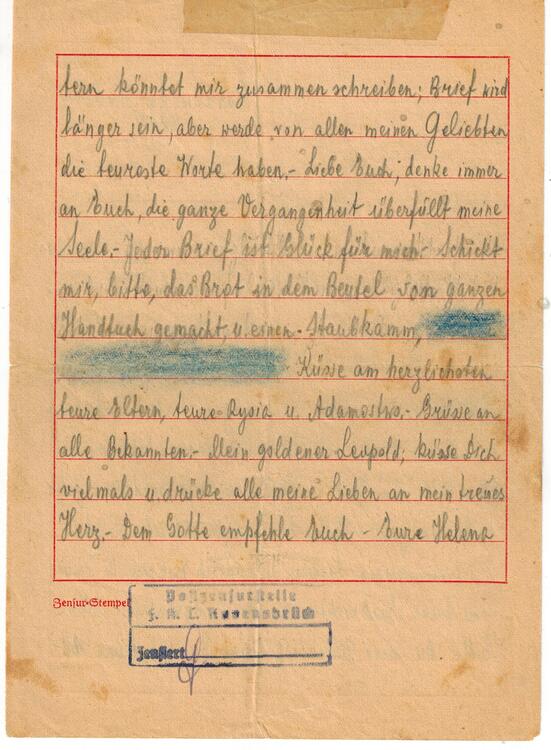 tern könntet mir zusammen schreiben; Brief wird
länger sein, aber werde von allen meinen Geliebten
die teureste Worte haben.- Liebe Euch, denke immer
an Euch, die ganze Vergangenheit überfüllt meine
Seele.- Jeder Brief ist Glück für mich.- Schickt
mir, bitte, das Brot in dem Beutel von ganzen
Handtuch gemacht, u. einen Staubkamm,
Küsse am herzlichsten
teure Eltern, teure Rysia u. - Grüsse an
alle Bekannten.- Mein goldener Leopold, küsse Dich
vielmals u. drücke alle meine Lieben an mein treues
Herz.- Dem Gotte empfehle Euch - Eure Helena
Zensur-Stempel
Postzensurstelle
F. K. L. Ravensbrück
Zensiert